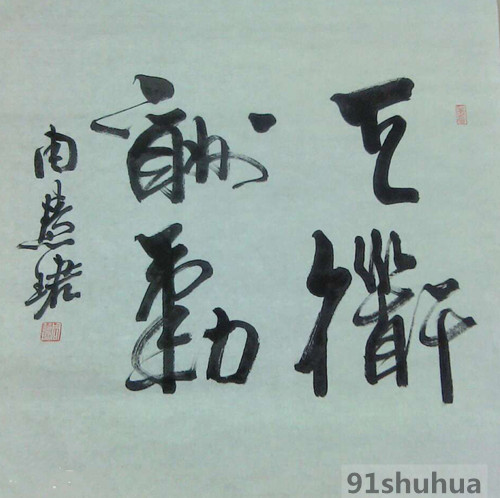 天道
酬勤
周慧珺
91shuhua